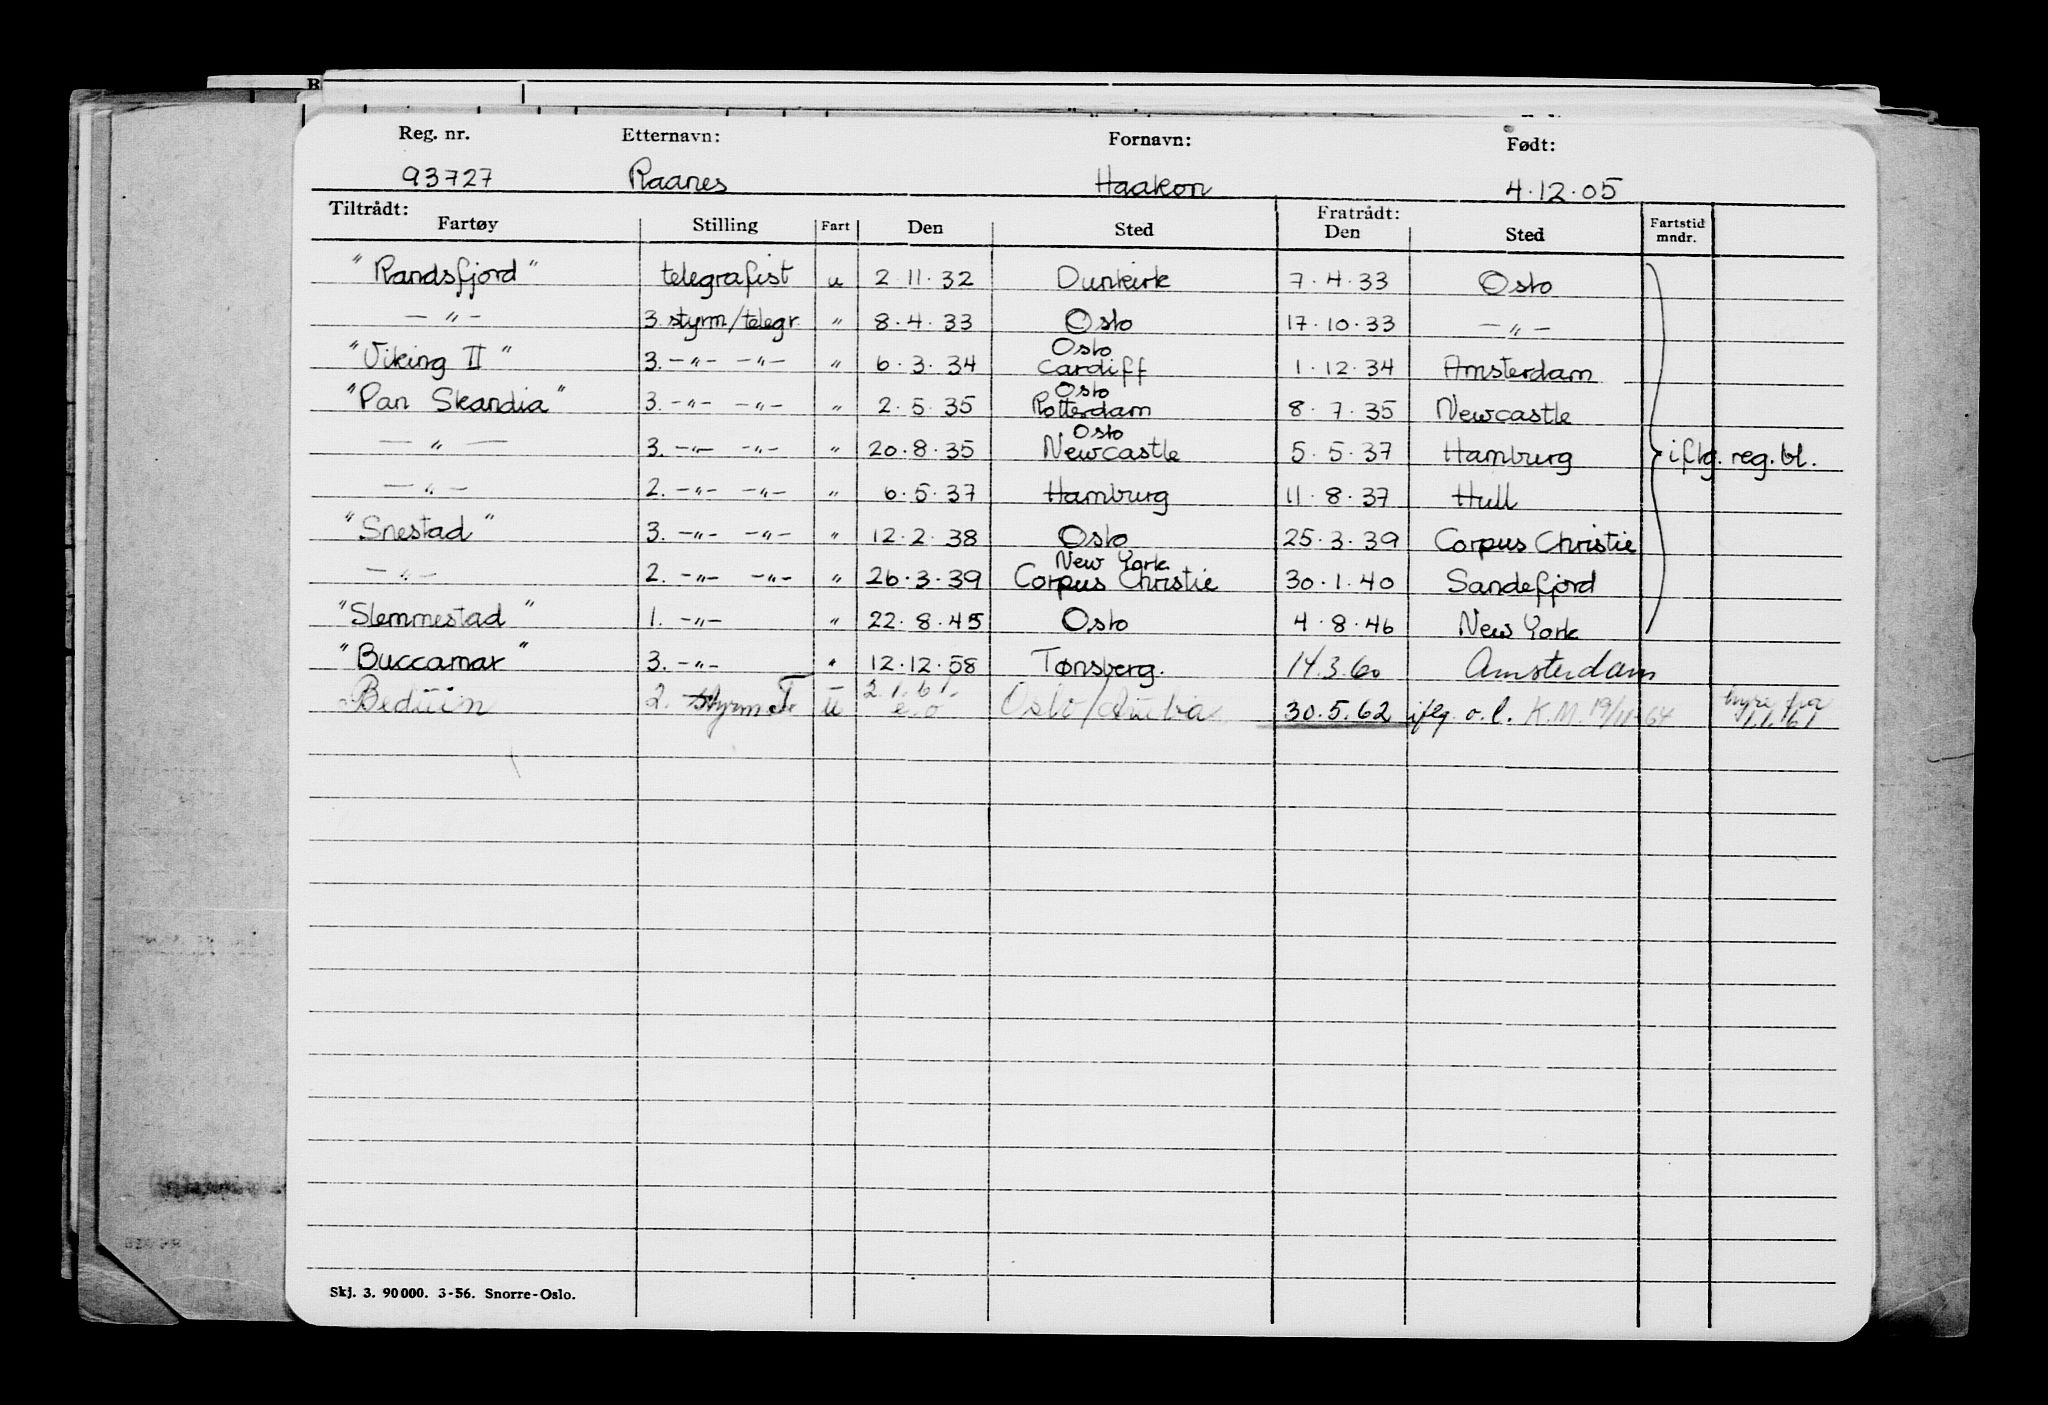 Reg. nr. Etternavn: Fornavn: Født:
93727 Raanes Haakon 4.12.05
Tiltrådt: Fratrådt:
Fartøy Stilling Fart Den Sted Den Sted Fartstid mndr.
"Randsfjord" telegrafist u 2.11.32 Dunkirk 7.4.33 Oslo
-"- 3. styrm/telegr. " 8.4.33 Oslo 17.10.33 -"-
Oslo
"Viking II" 3. -"- -"- " 6.3.34 Cardiff 1.12.34 Amsterdam
Oslo
"Pan Skandia" 3. -"- -"- " 2.5.35 Rotterdam 8.7.35 Newcastle
Oslo
-"- 3. -"- -"- " 20.8.35 Newcastle 5.5.37 Hamburg iflg. reg. bl.
-"- 2. -"- -"- " 6.5.37 Hamburg 11.8.37 Hull
"Snestad" 3. -"- -"- " 12.2.38 Oslo 25.3.39 Corpus Christie
New York
-"- 2. -"- -"- " 26.3.39 Corpus Christie 30.1.40 Sandefjord
"Slemmestad" 1. -"- " 22.8.45 Oslo 4.8.46 New York
"Buccamar" 3. -"- " 12.12.58 Tønsberg. 14.3.60 Amsterdam
Beduin 2. u 2.1.61. Oslo/ 30.5.62 iflg. o.l. K.M. 19/11-64 hyre fra
1.1.61
Skj. 3. 90000. 3-56. Snorre-Oslo.